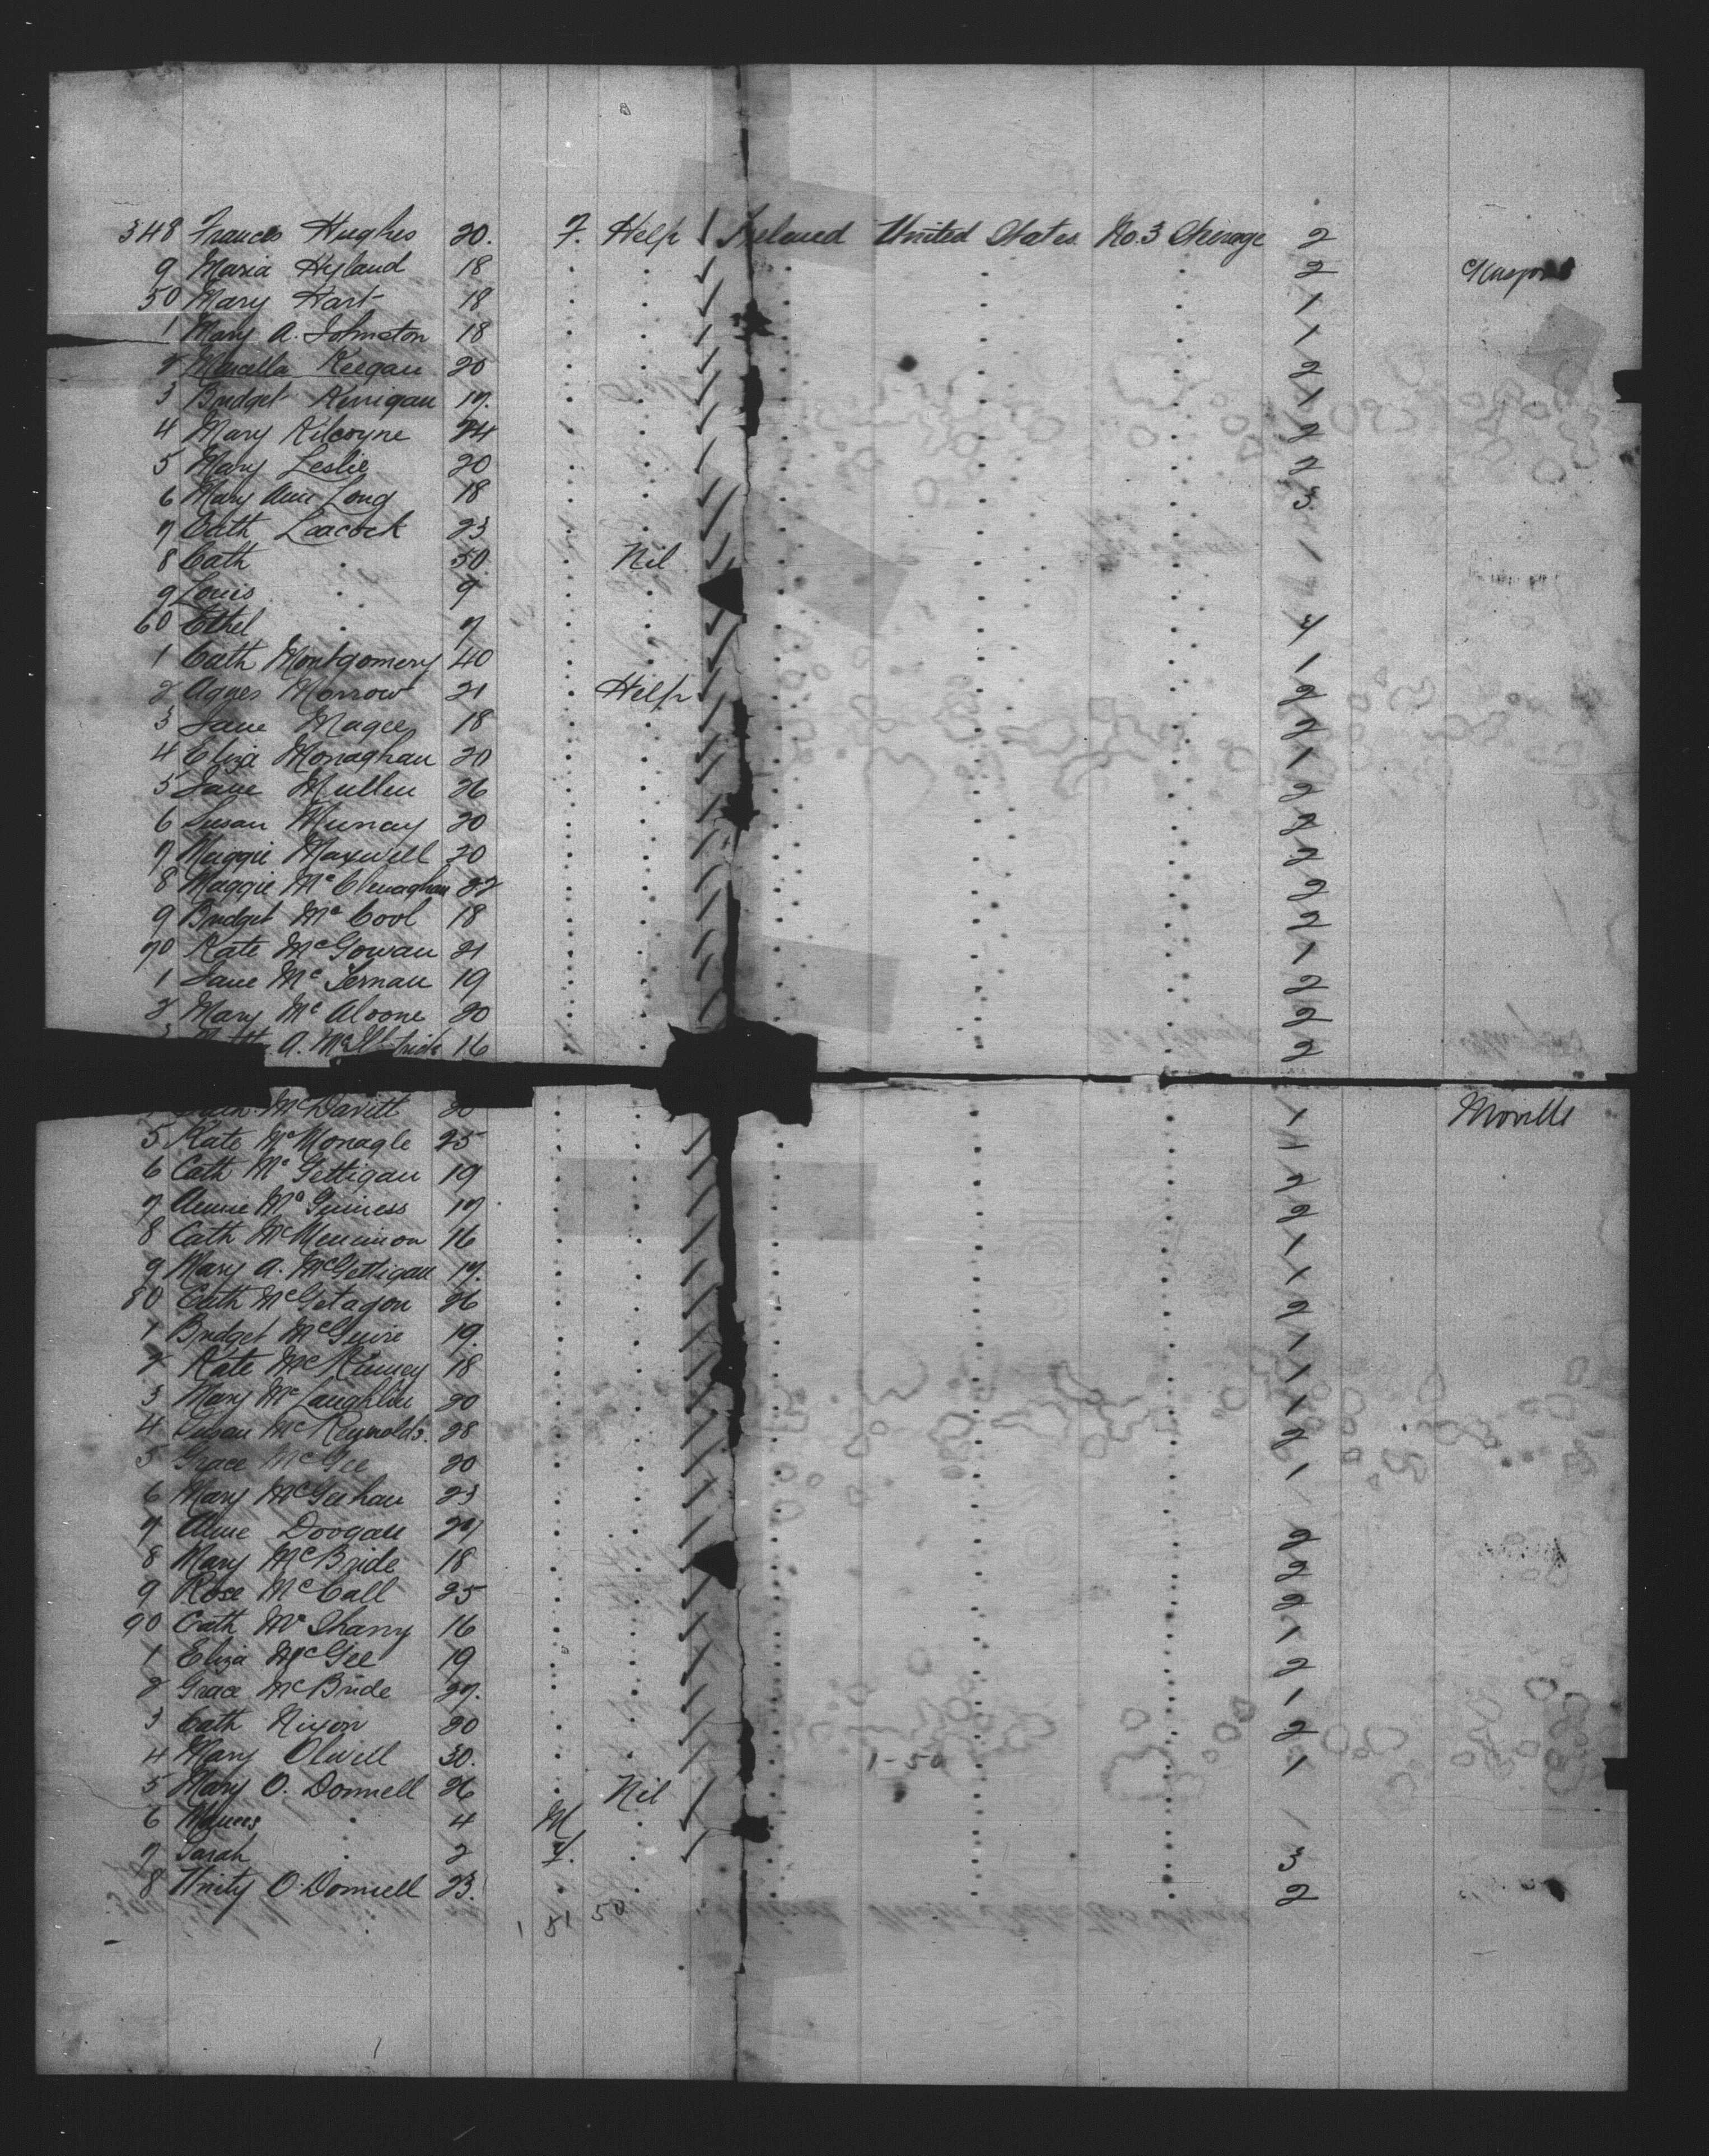 348 Frances Hughes 20. F. Help Ireland United States No. 3 Steerage 2
9 Maria Hyland 18 2
50 Mary Hart 18 1
1 Mary A. Johnston 18 1
2 Marcella Keegan 20 2
3 Bridget Kerrigan 17. 1
4 Mary Kilcoyne 24 2
5 Mary Leslie 20 2
6 Mary Ann Long 18 3
7 Cath Laacock 23
8 Cath " 50. Nil 1
9 Louis " 9
60 Ethel " 7 4
1 Cath Montgomery 40 1
2 Agnes Morrow 21 Help 2
3 Jane Magee 18 2
4 Eliza Monaghan 20 1
5 Jane Mullen 26 2
6 Susan Murray 20 2
7 Maggie Maxwell 20 2
8 Maggie McClenaghan 22 2
9 Bridget McCool 18 2
70 Kate McGowan 21 1
1 Jane McTernan 19 2
2 Mary McAloone 20 2
A. 16 2
McDavitt 20 1 Moville
5 Kate McMonagle 25 1
6 Cath McGettigan 19 2
7 Annie McGuiness 17 2
8 Cath McMenimon 16 1
9 Mary A. McGettigan 17. 1
80 Cath McGetagon 26 2
1 Bridget McGuire 19. 1
2 Kate McKinney 18 1
3 Mary McLaughlin 20 1
4 Susan McReynolds. 28 2
5 Grace McGee 20 1
6 Mary McGeehan 23
7 Anne Doogan 27 2
8 Mary McBride 18 2
9 Rose McCall 25 2
90 Cath McSharry 16 1
1 Eliza McGee 19 2
2 Grace McBride 27. 1
3 Cath Nixon 20 2
4 Mary Olwell 30. 1-50 1
5 Mary O.Donnell 26 Nil
6 Manus " 4 M
7 Sarah " 2 F. 3
8 Unity O.Donnell 23. 2
1 51 50